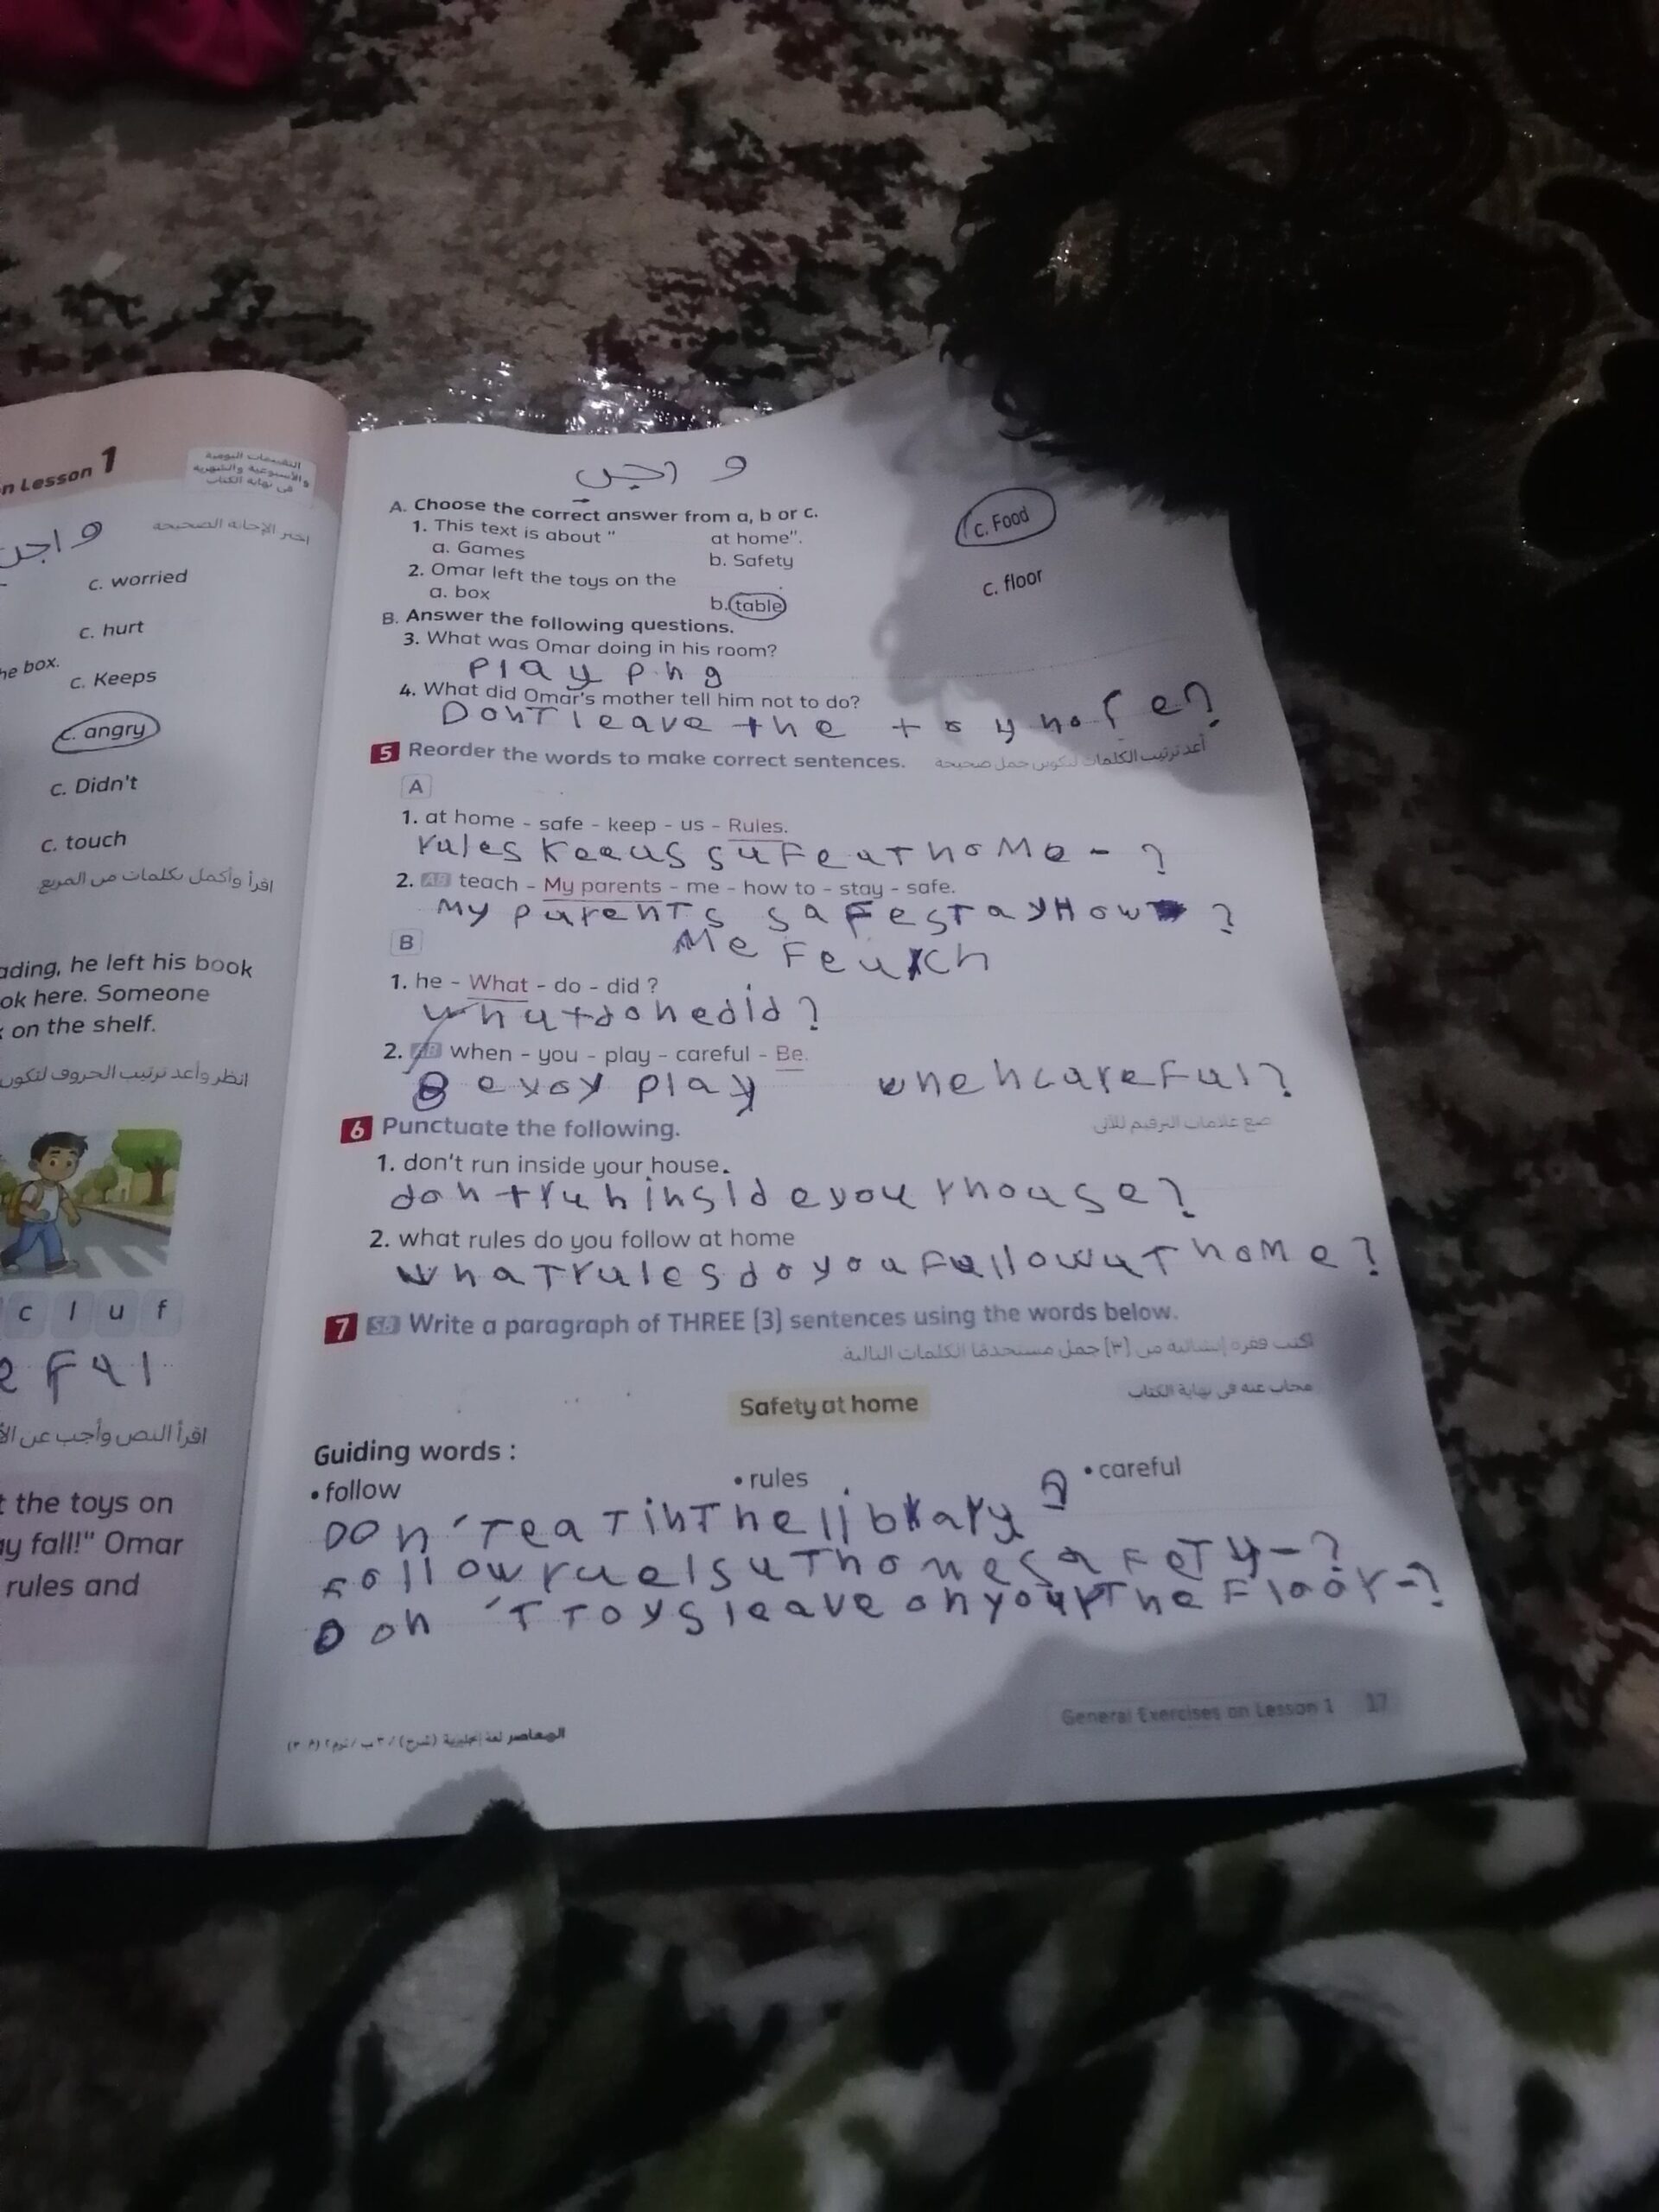 n Lesson 1
التقييمات اليومية
والأسبوعية والشهرية
فى نهاية الكتاب
اختر الإجابة الصحيحة
واجب
c. worried
c. hurt
he box.
c. Keeps
c. angry
c. Didn't
c. touch
اقرأ وأكمل بكلمات من المربع
ading, he left his book
ok here. Someone
on the shelf.
انظر وأعد ترتيب الحروف لتكون
c l u f
e F u l
اقرأ النص وأجب عن الأ
t the toys on
ay fall!" Omar
rules and
واجب
A. Choose the correct answer from a, b or c.
1. This text is about " at home".
a. Games b. Safety c. Food
2. Omar left the toys on the
a. box b. table c. floor
B. Answer the following questions.
3. What was Omar doing in his room?
Play p h g
4. What did Omar's mother tell him not to do?
DonT leave the toy
5 Reorder the words to make correct sentences. أعد ترتيب الكلمات لتكوين جمل صحيحة
A
1. at home - safe - keep - us - Rules.
rules Keeus sufeaThoMe - ?
2. AB teach - My parents - me - how to - stay - safe.
My purenTs saFesTayHow ?
Me Feuch
B
1. he - What - do - did ?
whutdohedid ?
2. AB when - you - play - careful - Be.
Be yoy play whehcareFul ?
6 Punctuate the following. ضع علامات الترقيم للآتى
1. don't run inside your house.
dontruhinsideyourhouse ?
2. what rules do you follow at home
whaTrulesdoyouFollowuThoMe ?
7 SB Write a paragraph of THREE (3) sentences using the words below.
اكتب فقرة إنشائية من (٣) جمل مستخدمًا الكلمات التالية.
Safety at home مجاب عنه فى نهاية الكتاب
Guiding words :
• follow • rules • careful
DOn'TeaTinThelibrary ?
FollowruelsuThomesaFeTy- ?
Don'TToysleaveonyourTheFloor- ?
General Exercises on Lesson 1 17
المعاصر لغة إنجليزية (شرح) / ٣ ب / ترم ٢ (م: ٣)